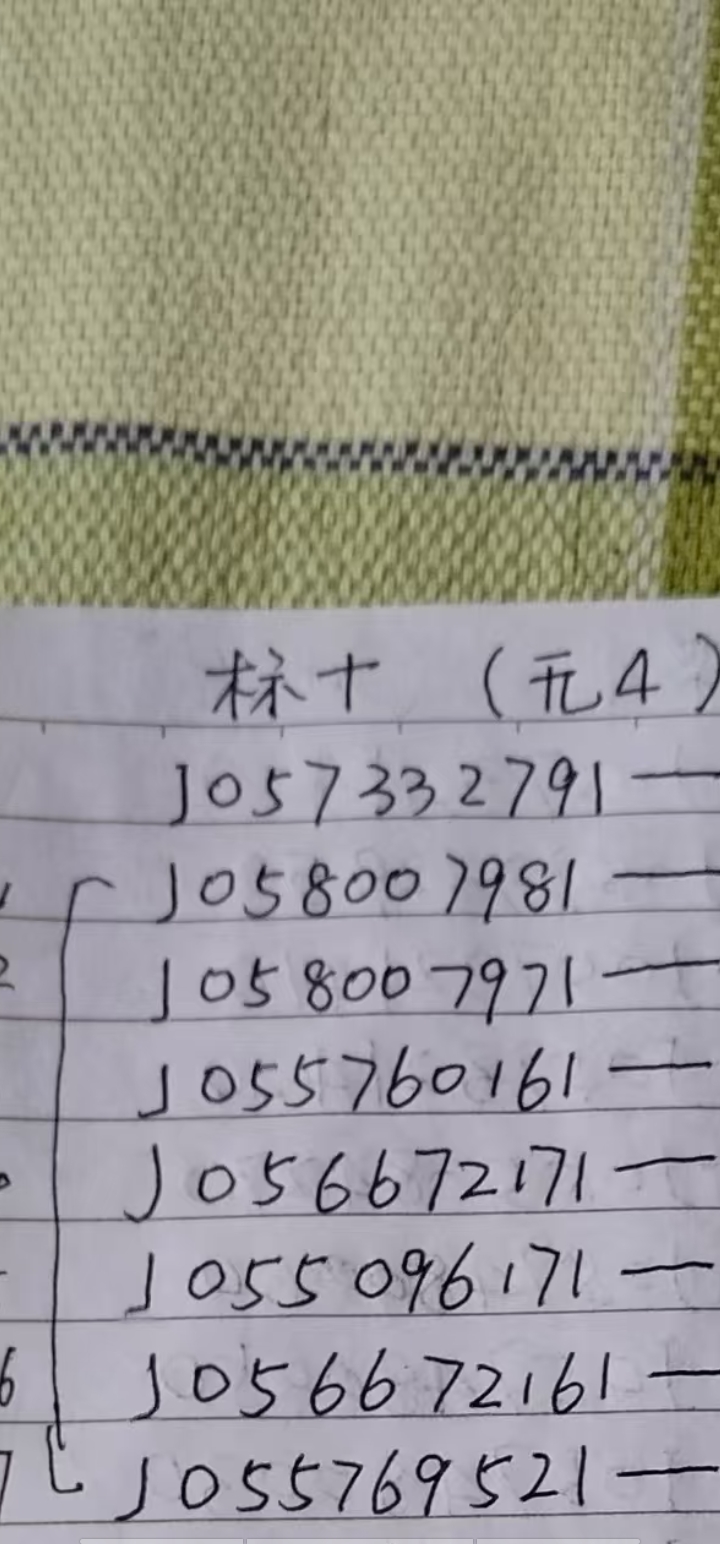 标十 (无4)
J057332791—
J058007981—
2 J058007971—
J055760161—
J056672171—
J055096171—
6 J056672161—
7 J055769521—